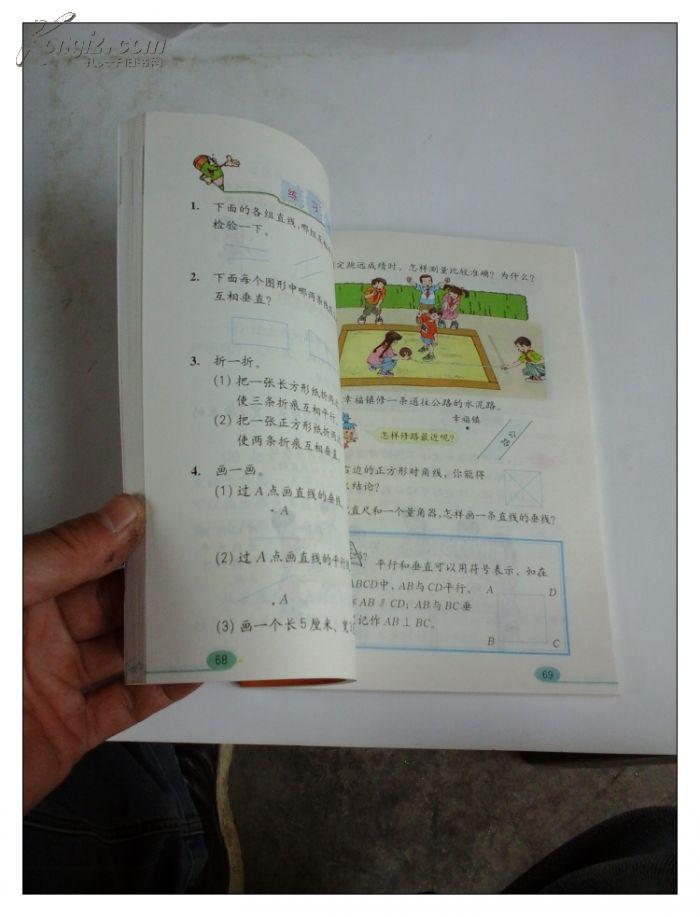 Kongfz.com
孔夫子旧书网
练 习
1. 下面的各组直线,哪组互相
检验一下。
2. 下面每个图形中哪两条线
互相垂直?
3. 折一折。
(1) 把一张长方形纸折两
使三条折痕互相平行
(2) 把一张正方形纸折两
使两条折痕互相垂直
4. 画一画。
(1) 过A点画直线的垂线
A
(2) 过A点画直线的平行
A
(3) 画一个长5厘米、宽
68
定跳远成绩时,怎样测量比较准确?为什么?
幸福镇修一条通往公路的水泥路。
幸福镇
怎样修路最近呢?
公路
右边的正方形对角线,你能得
结论?
直尺和一个量角器,怎样画一条直线的垂线?
平行和垂直可以用符号表示,如在
ABCD中,AB与CD平行,
作AB∥CD;AB与BC垂
记作AB⊥BC。
A D
B C
69